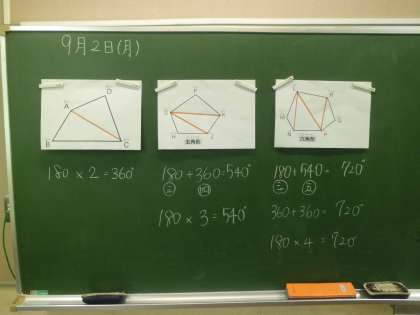 9月2日(月)
A
D
B
C
180×2=360°
五角形
180+360=540°
三 四
180×3=540°
六角形
180+540=720°
三 五
360+360=720°
180×4=720°